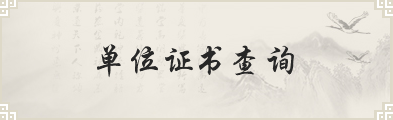 单位证书查询